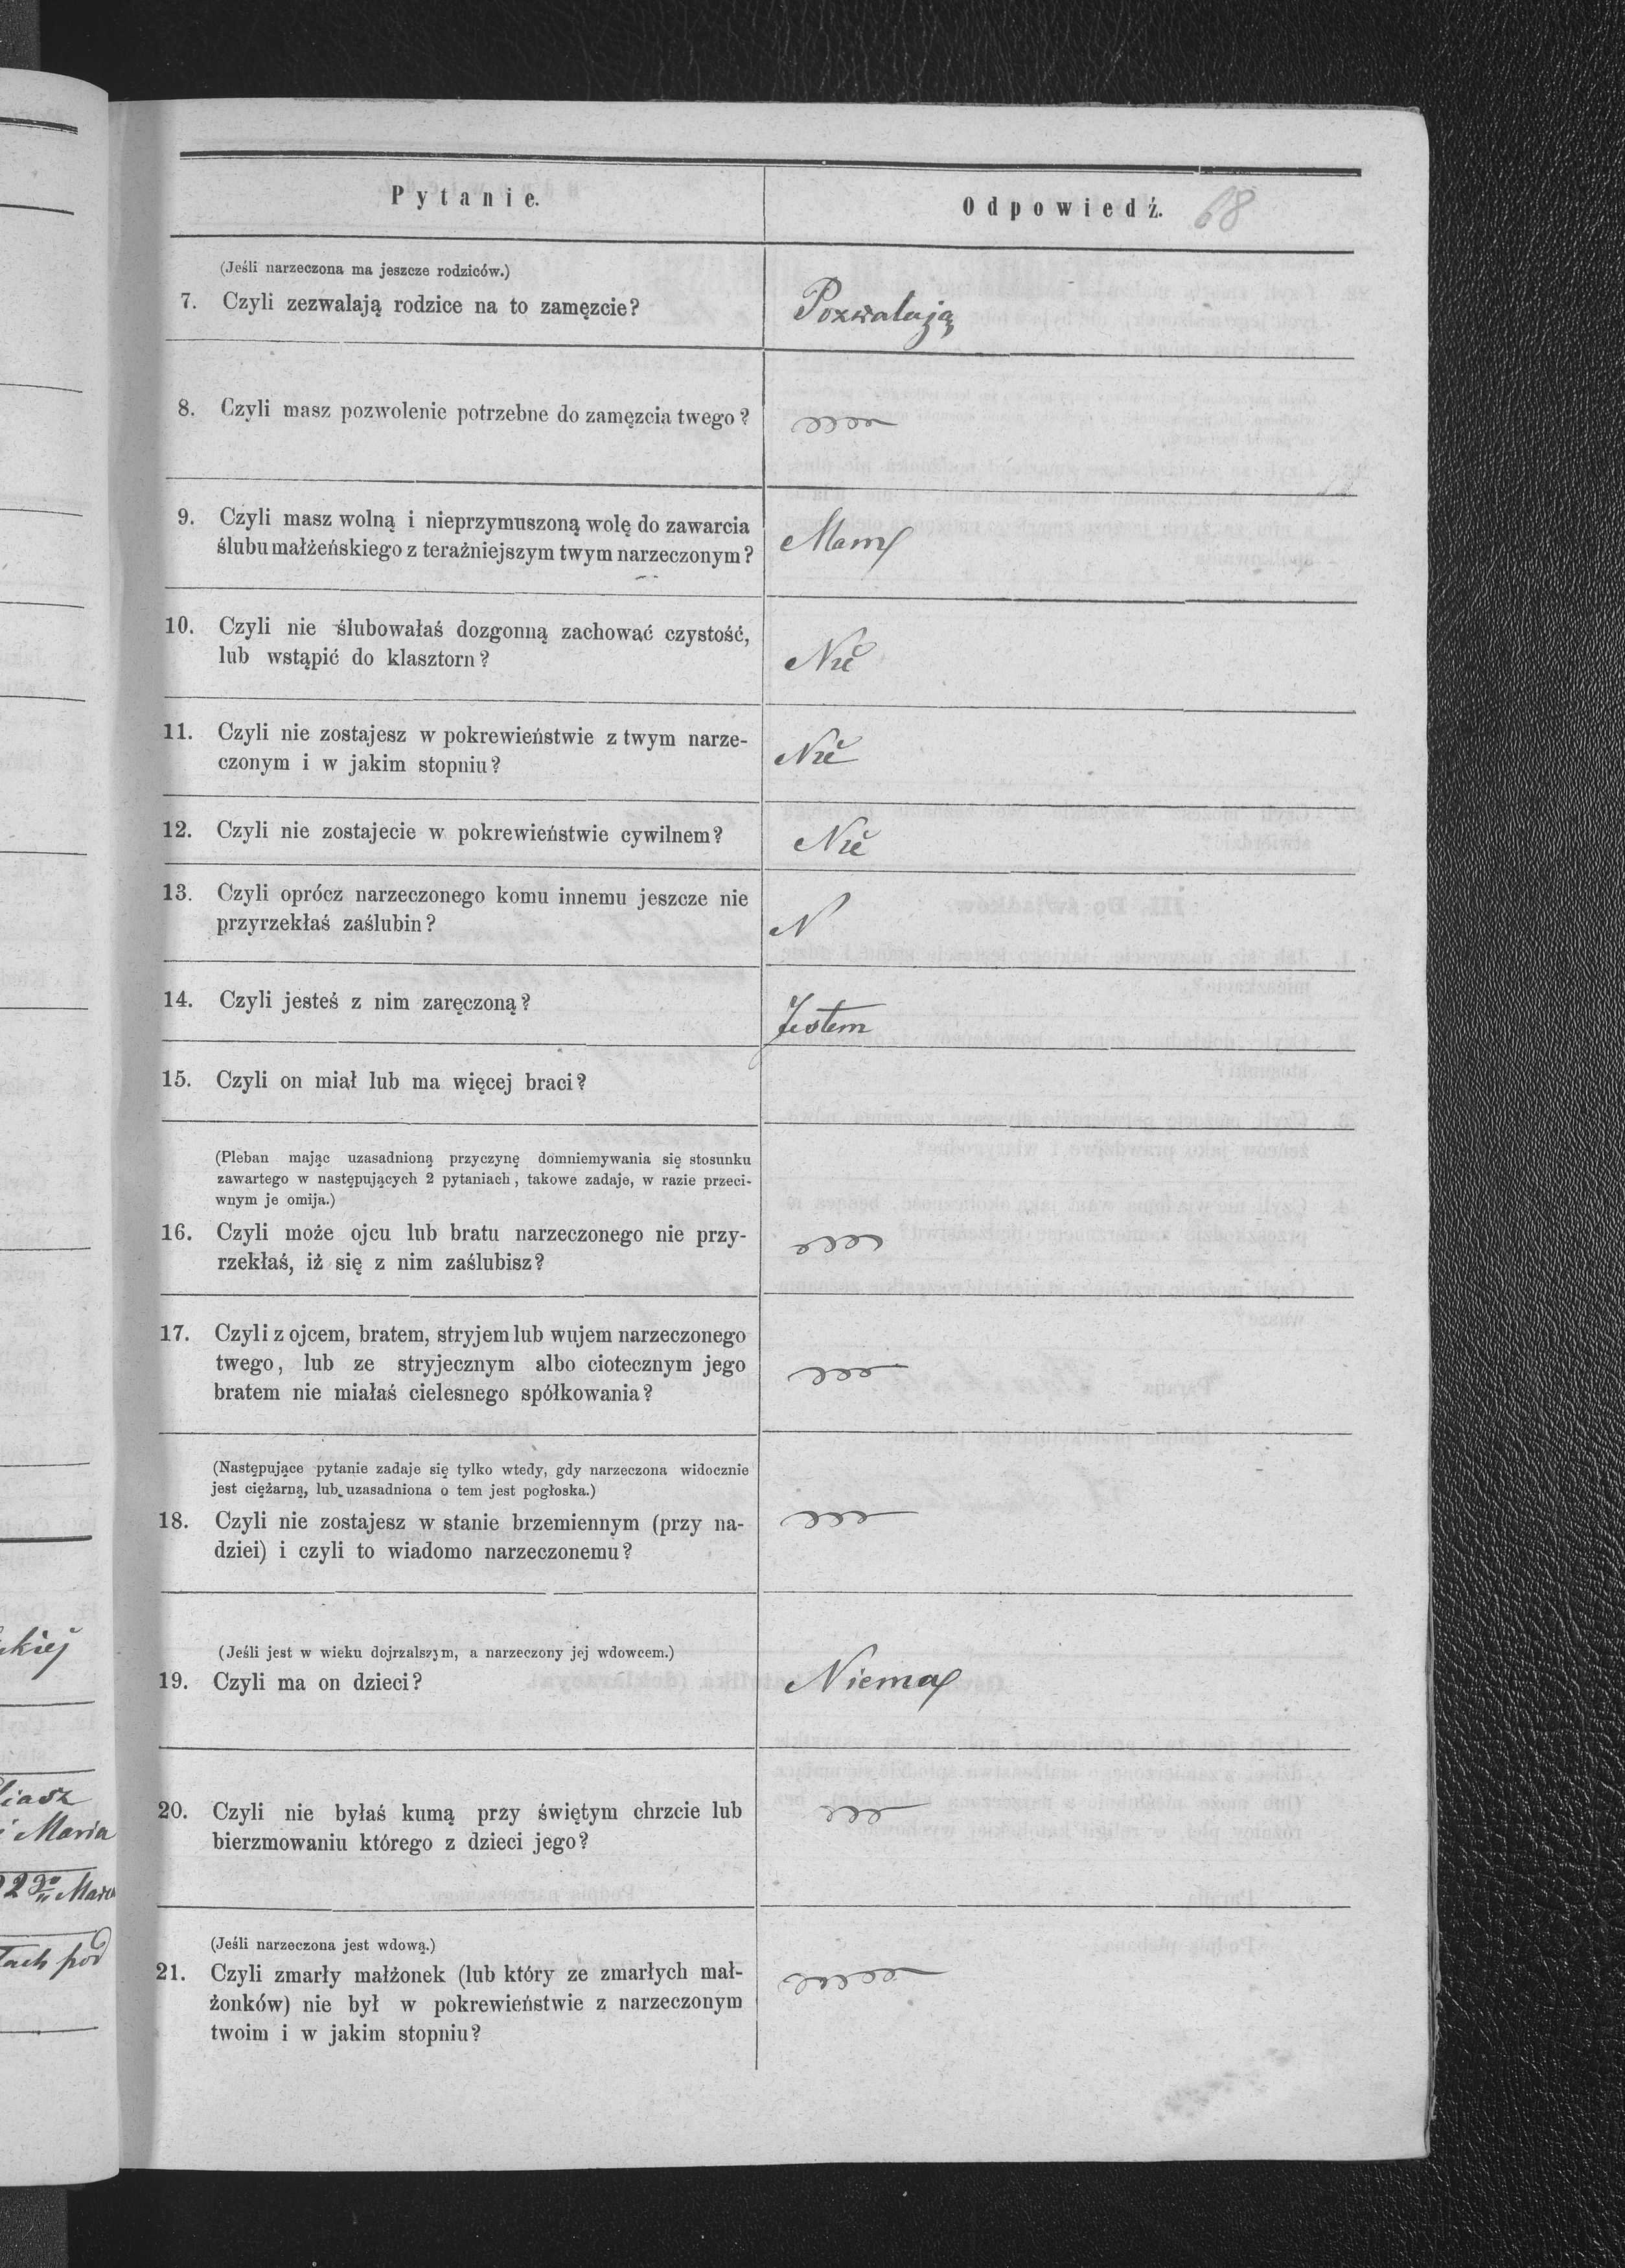 Pytanie.
Odpowiedź.
68
(Jeśli narzeczona ma jeszcze rodziców.)
7. Czyli zezwalają rodzice na to zamęzcie?
Pozwalają
8. Czyli masz pozwolenie potrzebne do zamęzcia twego?
9. Czyli masz wolną i nieprzymuszoną wolę do zawarcia
ślubu małżeńskiego z teraźniejszym twym narzeczonym?
Mam
10. Czyli nie ślubowałaś dozgonną zachować czystość,
lub wstąpić do klasztorn?
Nie
11. Czyli nie zostajesz w pokrewieństwie z twym narze-
czonym i w jakim stopniu?
Nie
12. Czyli nie zostajecie w pokrewieństwie cywilnem?
Nie
13. Czyli oprócz narzeczonego komu innemu jeszcze nie
przyrzekłaś zaślubin?
N
14. Czyli jesteś z nim zaręczoną?
Jestem
15. Czyli on miał lub ma więcej braci?
(Pleban mając uzasadnioną przyczynę domniemywania się stosunku
zawartego w następujących 2 pytaniach, takowe zadaje, w razie przeci-
wnym je omija.)
16. Czyli może ojcu lub bratu narzeczonego nie przy-
rzekłaś, iż się z nim zaślubisz?
17. Czyli z ojcem, bratem, stryjem lub wujem narzeczonego
twego, lub ze stryjecznym albo ciotecznym jego
bratem nie miałaś cielesnego spółkowania?
(Następujące pytanie zadaje się tylko wtedy, gdy narzeczona widocznie
jest ciężarną, lub uzasadniona o tem jest pogłoska.)
18. Czyli nie zostajesz w stanie brzemiennym (przy na-
dziei) i czyli to wiadomo narzeczonemu?
(Jeśli jest w wieku dojrzalszym, a narzeczony jej wdowcem.)
19. Czyli ma on dzieci?
Niema
20. Czyli nie byłaś kumą przy świętym chrzcie lub
bierzmowaniu którego z dzieci jego?
(Jeśli narzeczona jest wdową.)
21. Czyli zmarły małżonek (lub który ze zmarłych mał-
żonków) nie był w pokrewieństwie z narzeczonym
twoim i w jakim stopniu?